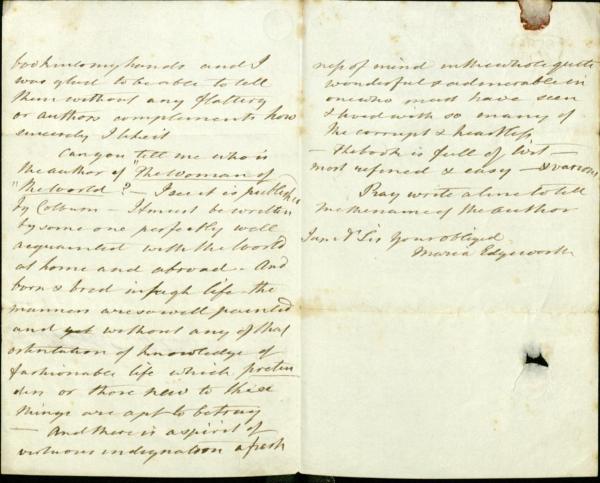 book into my hands and I
was glad to be able to tell
them without any flattery
or authors complements how
sincerely I like it
Can you tell me who is
the author of "The Woman of
"the World"? — I see it is published
by Colburn — It must be written
by some one perfectly well
acquainted with the World
at home and abroad – And
born & bred in high life – the
manners are so well painted
and yet without any of that
ostentation of knowledge of
fashionable life which preten
ders or those new to these
things are apt to betray
— And there is a spirit of
virtuous indignation a fresh
ness of mind in the whole quite
wonderful & admirable in
one who must have seen
& lived with so many of
the corrupt & heartless
— The book is full of wit —
most refined & easy — & various
Pray write a line to tell
me the name of the author
I am Dr Sir Your obliged
Maria Edgeworth